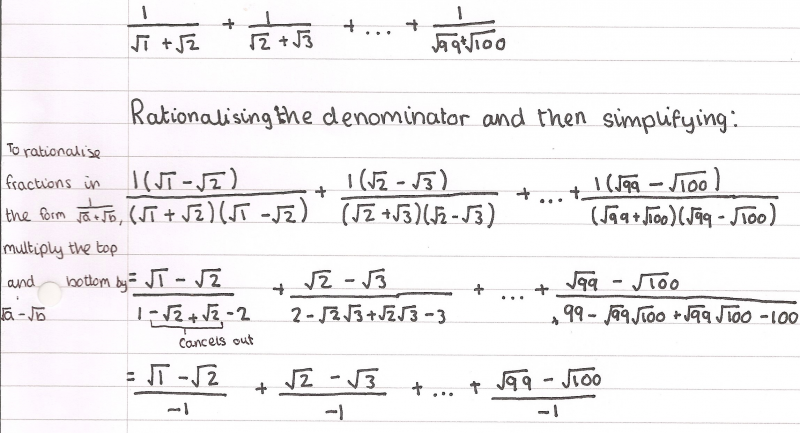 1/(√1 + √2) + 1/(√2 + √3) + ... + 1/(√99 + √100)
Rationalising the denominator and then simplifying:
To rationalise
fractions in
the form 1/(√a + √b),
multiply the top
and bottom by
√a - √b
1(√1 - √2)/((√1 + √2)(√1 - √2)) + 1(√2 - √3)/((√2 + √3)(√2 - √3)) + ... + 1(√99 - √100)/((√99 + √100)(√99 - √100))
= (√1 - √2)/(1 - √2 + √2 - 2) + (√2 - √3)/(2 - √2√3 + √2√3 - 3) + ... + (√99 - √100)/(99 - √99√100 + √99√100 - 100)
Cancels out
= (√1 - √2)/-1 + (√2 - √3)/-1 + ... + (√99 - √100)/-1